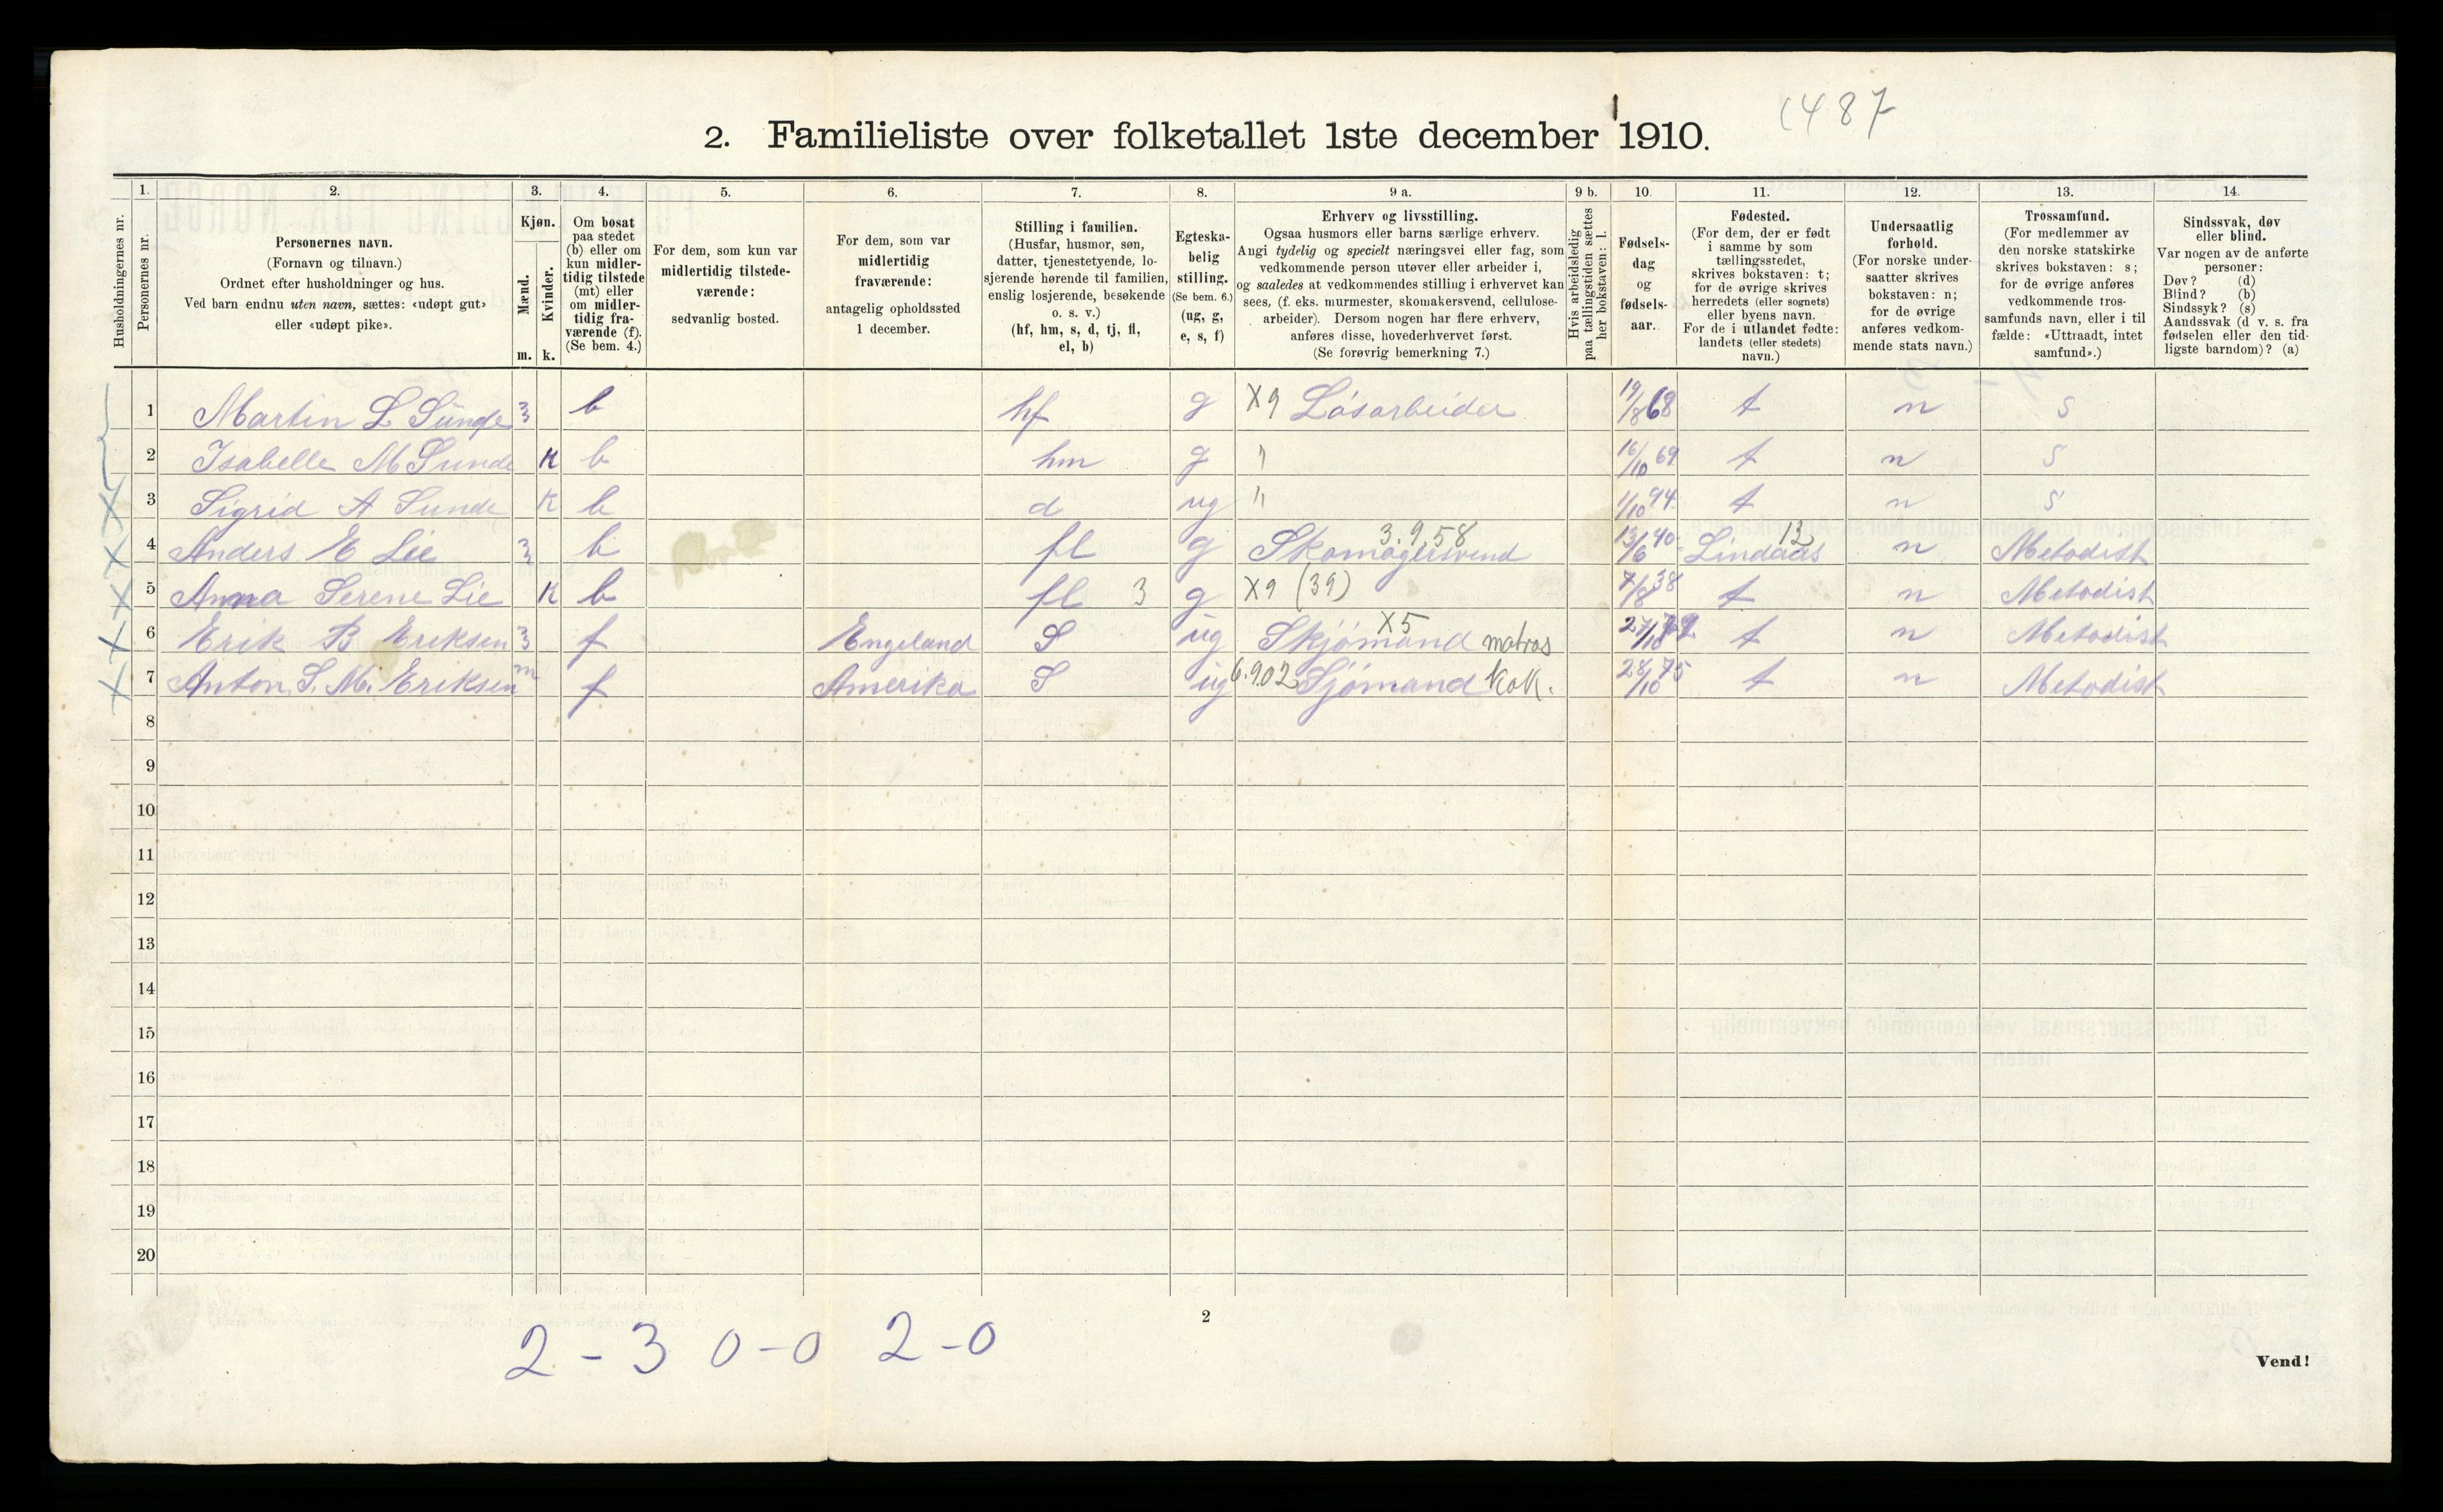 1487
2. Familieliste over folketallet 1ste december 1910.
Husholdningernes nr.
1.
Personernes nr.
2.
Personernes navn.
(Fornavn og tilnavn.)
Ordnet efter husholdninger og hus.
Ved barn endnu uten navn, sættes: «udøpt gut»
eller «udøpt pike».
3.
Kjøn.
Mænd.
Kvinder.
m. k.
4.
Om bosat
paa stedet
(b) eller om
kun midler-
tidig tilstede
(mt) eller
om midler-
tidig fra-
værende (f).
(Se bem. 4.)
5.
For dem, som kun var
midlertidig tilstede-
værende:
sedvanlig bosted.
6.
For dem, som var
midlertidig
fraværende:
antagelig opholdssted
1 december.
7.
Stilling i familien.
(Husfar, husmor, søn,
datter, tjenestetyende, lo-
sjerende hørende til familien,
enslig losjerende, besøkende
o. s. v.)
(hf, hm, s, d, tj, fl,
el, b)
8.
Egteska-
belig
stilling.
(Se bem. 6.)
(ug, g,
e, s, f)
9 a.
Erhverv og livsstilling.
Ogsaa husmors eller barns særlige erhverv.
Angi tydelig og specielt næringsvei eller fag, som
vedkommende person utøver eller arbeider i,
og saaledes at vedkommendes stilling i erhvervet kan
sees, (f. eks. murmester, skomakersvend, cellulose-
arbeider). Dersom nogen har flere erhverv,
anføres disse, hovederhvervet først.
(Se forøvrig bemerkning 7.)
9 b.
Hvis arbeidsledig
paa tællingstiden sættes
her bokstaven: l.
10.
Fødsels-
dag
og
fødsels-
aar.
11.
Fødested.
(For dem, der er født
i samme by som
tællingsstedet,
skrives bokstaven: t;
for de øvrige skrives
herredets (eller sognets)
eller byens navn.
For de i utlandet fødte:
landets (eller stedets)
navn.)
12.
Undersaatlig
forhold.
(For norske under-
saatter skrives
bokstaven: n;
for de øvrige
anføres vedkom-
mende stats navn.)
13.
Trossamfund.
(For medlemmer av
den norske statskirke
skrives bokstaven: s;
for de øvrige anføres
vedkommende tros-
samfunds navn, eller i til
fælde: «Uttraadt, intet
samfund».)
14.
Sindssvak, døv
eller blind.
Var nogen av de anførte
personer:
Døv? (d)
Blind? (b)
Sindssyk? (s)
Aandssvak (d v. s. fra
fødselen eller den tid-
ligste barndom)? (a)
1 Martin L Sunde b hf g X9 Løsarbeider 19/8 68 t n S
2 Isabelle M Sunde K b hm g " 16/10 69 t n S
3 Sigrid A Sunde K b d ug " 1/10 94 t n S
4 Anders E Lie b fl g Skomagersvend 3.9.58 13/6 40 Lindaas 12 n Metodist
5 Anna Serene Lie K b fl 3 g X9 (39) 7/8 38 t n Metodist
6 Erik B Eriksen f Engeland S ug Skjømand X5 matros t n Metodist
7 Anton S. M. Eriksen m f Amerika S ug 6.902 Sjømand kok. 28/10 75 t n Metodist
8
9
10
11
12
13
14
15
16
17
18
19
20
2
2 - 3 0-0 2-0
Vend!